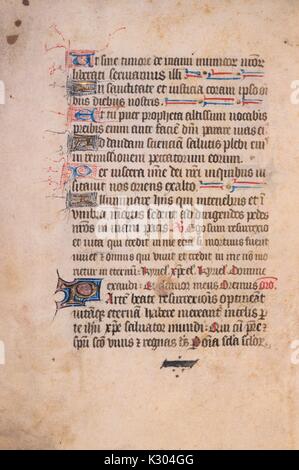 Ut sine timore de manu inimicor nror
liberati serviamus illi
In sanctitate et iusticia coram ipso
bus diebus nostris.
Et tu puer propheta altissimi vocabis
preibis enim ante faciem dni parare vias ei
Ad dandam scienciam salutis plebi ei
in remissionem peccatorum eorum.
Per viscera mie dei nri in quibus vi
sitavit nos oriens ex alto.
Illumi nare hiis qui in tenebris et i
umbra mortis sedent ad dirigendos pedes
nros in viam pacis. Ego sum resurrexio
et vita qui credit in me etia si mortuus fuerit
vivet et omnis qui vivit et credit in me no mo
rietur in eternum. Kyriel xpel Kyriel Domine
exaudi. Et clamor meus Oremus oro.
Parte beate resurrexionis optineat
vitaque eternam habere mereant in celis p
te ihu xpe salvator mundi: Qui cum pre et
spu sco vivis et regnas scla sclor.
a
alamy
Image ID: K304GG
www.alamy.com